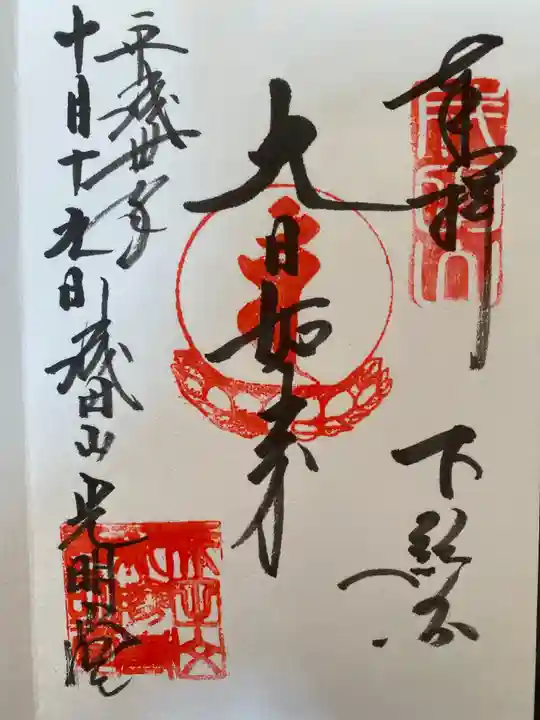 奉拝
下総國
大日如来
平成卅年
十月十九日成田山光明堂